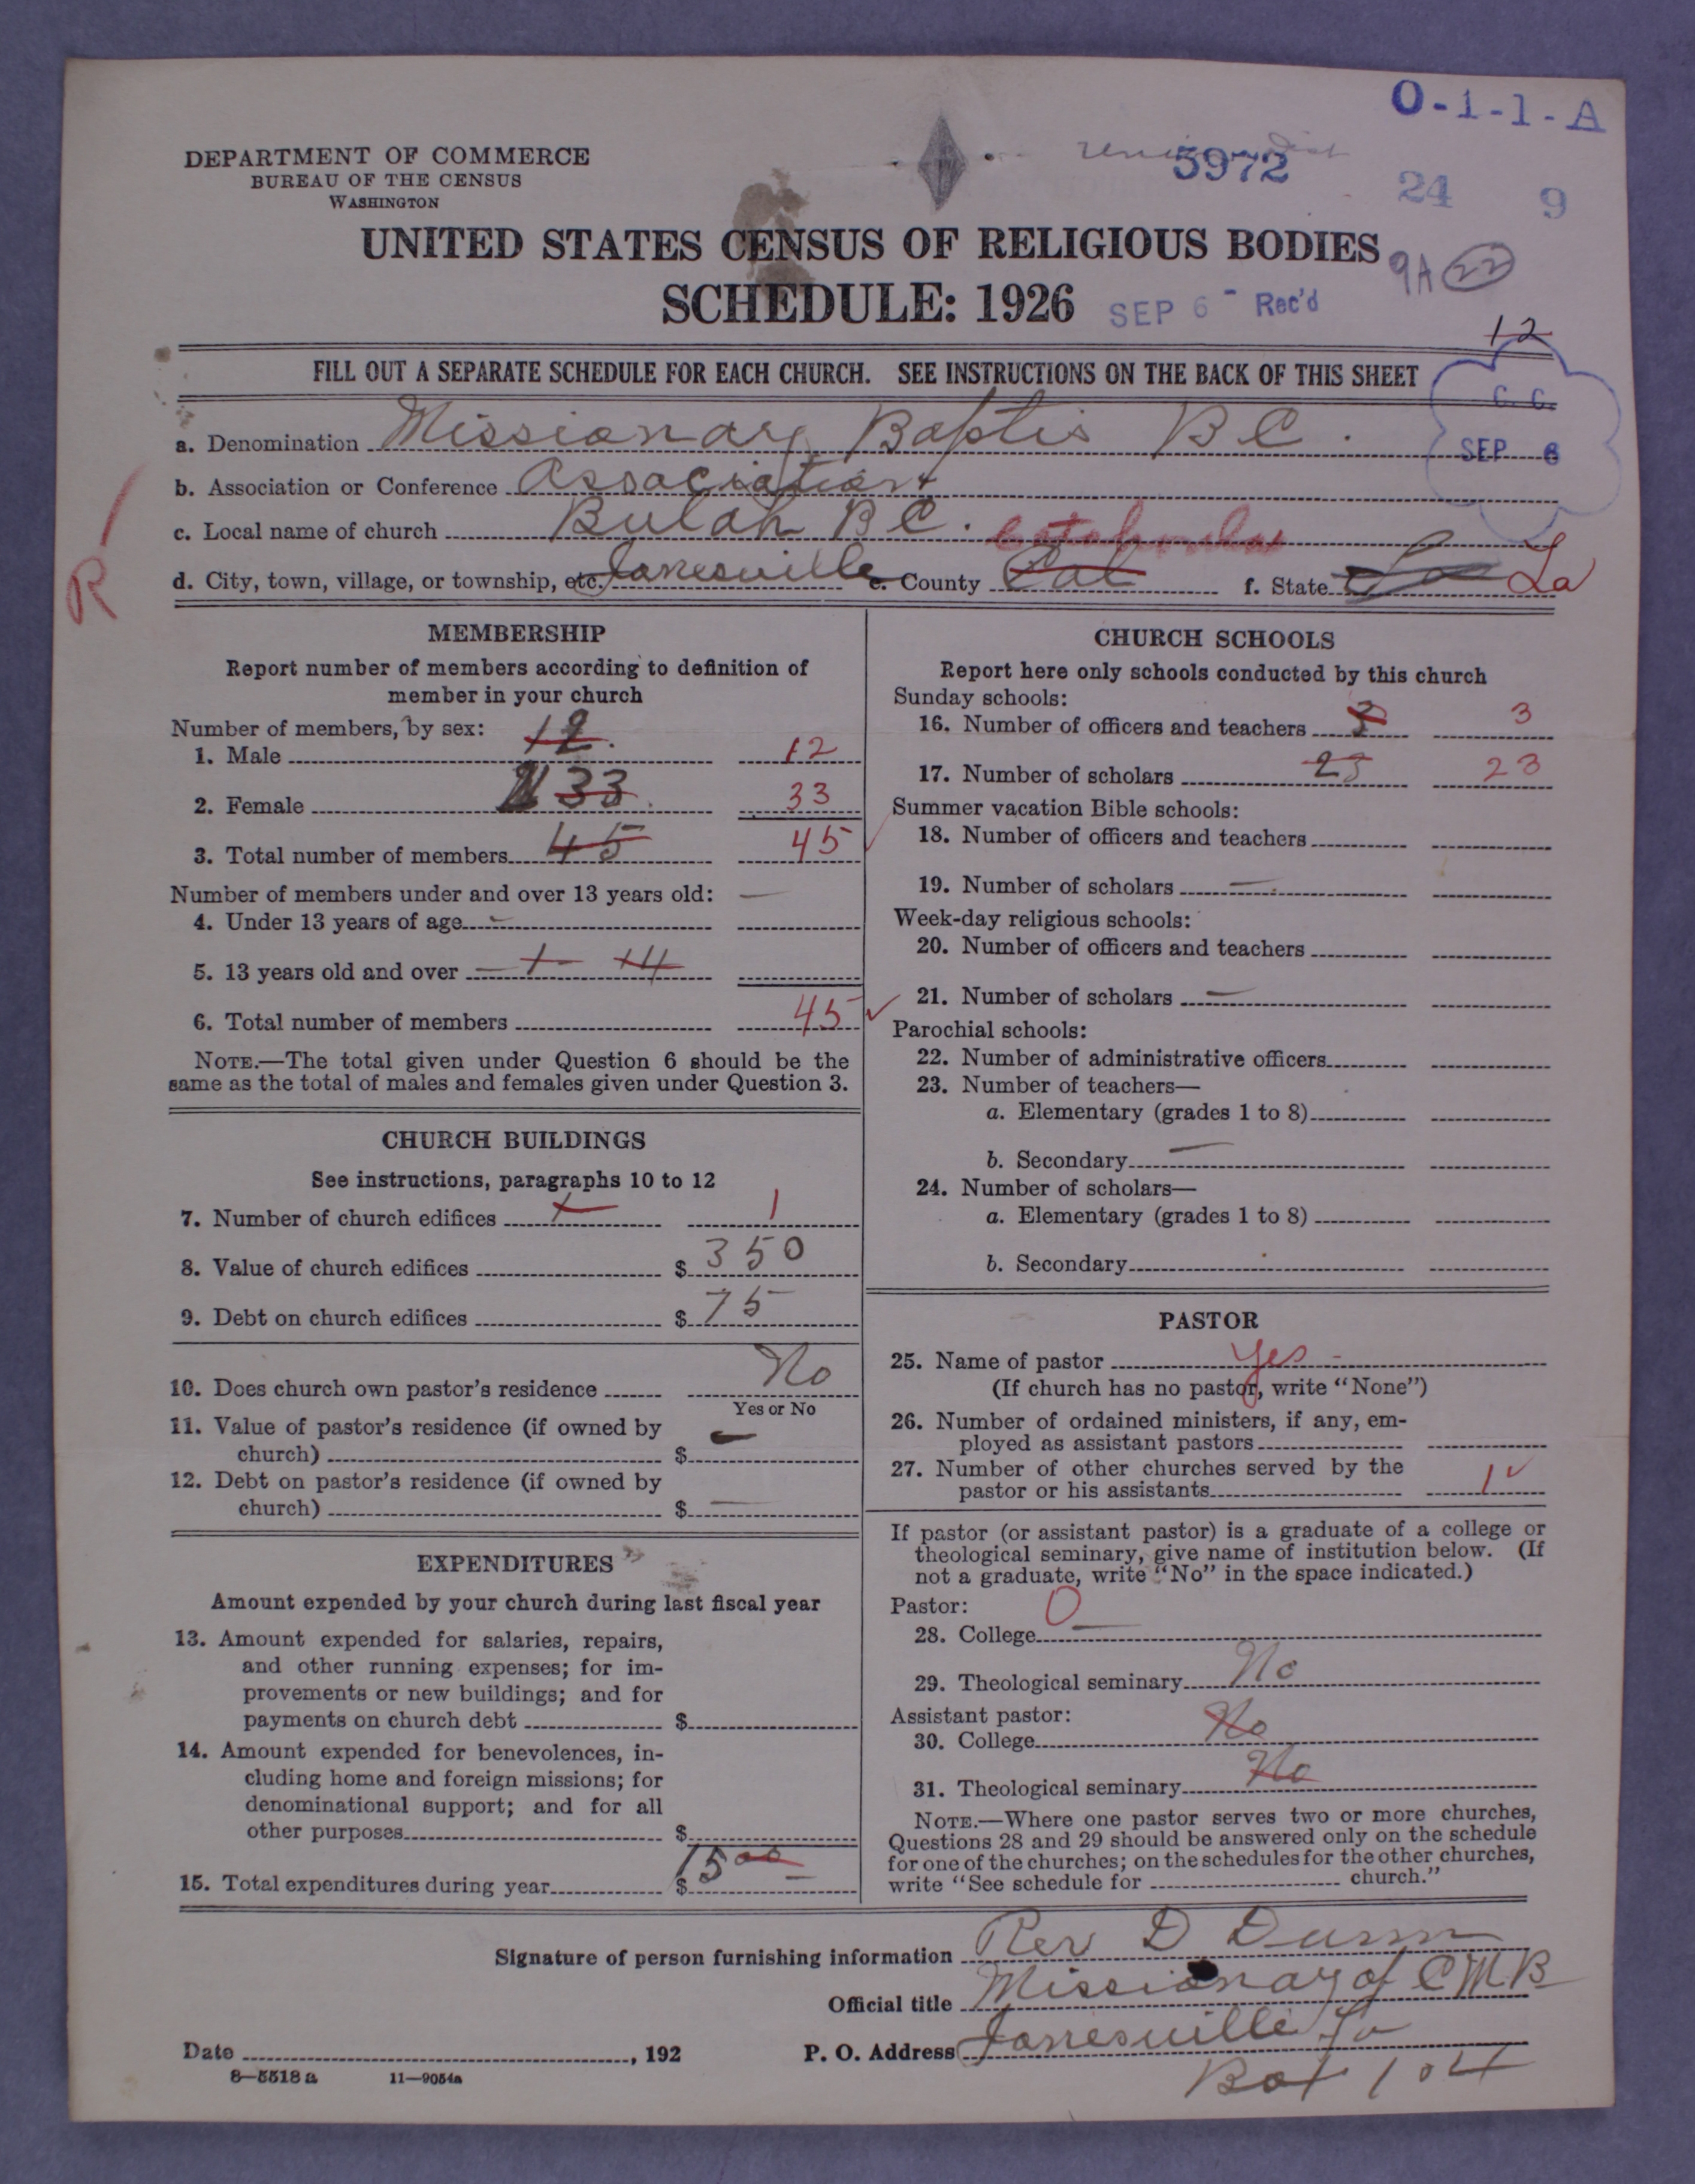 O-1-1-A
DEPARTMENT OF COMMERCE
BUREAU OF THE CENSUS
WASHINGTON
5972
24 9
UNITED STATES CENSUS OF RELIGIOUS BODIES
9A 22
SCHEDULE: 1926
SEP 6 - Rec'd
12
FILL OUT A SEPARATE SCHEDULE FOR EACH CHURCH. SEE INSTRUCTIONS ON THE BACK OF THIS SHEET
C. C.
SEP 6
a. Denomination Missionary Baptis B C.
b. Association or Conference Association
c. Local name of church Bulah B C.
R
d. City, town, village, or township, etc. Jonesville e. County Cat f. State La
MEMBERSHIP
Report number of members according to definition of
member in your church
Number of members, by sex:
1. Male 12. 12
2. Female 33. 33
3. Total number of members 45 45
Number of members under and over 13 years old: —
4. Under 13 years of age -
5. 13 years old and over
6. Total number of members 45
NOTE.—The total given under Question 6 should be the
same as the total of males and females given under Question 3.
CHURCH BUILDINGS
See instructions, paragraphs 10 to 12
7. Number of church edifices 1 1
8. Value of church edifices $ 350
9. Debt on church edifices $ 75
10. Does church own pastor's residence No
Yes or No
11. Value of pastor's residence (if owned by
church) $ —
12. Debt on pastor's residence (if owned by
church) $ —
EXPENDITURES
Amount expended by your church during last fiscal year
13. Amount expended for salaries, repairs,
and other running expenses; for im-
provements or new buildings; and for
payments on church debt $
14. Amount expended for benevolences, in-
cluding home and foreign missions; for
denominational support; and for all
other purposes $
15. Total expenditures during year $ 15 00
CHURCH SCHOOLS
Report here only schools conducted by this church
Sunday schools:
16. Number of officers and teachers 3 3
17. Number of scholars 23 23
Summer vacation Bible schools:
18. Number of officers and teachers
19. Number of scholars —
Week-day religious schools:
20. Number of officers and teachers
21. Number of scholars —
Parochial schools:
22. Number of administrative officers
23. Number of teachers—
a. Elementary (grades 1 to 8)
b. Secondary —
24. Number of scholars—
a. Elementary (grades 1 to 8)
b. Secondary
PASTOR
25. Name of pastor Yes -
(If church has no pastor, write "None")
26. Number of ordained ministers, if any, em-
ployed as assistant pastors
27. Number of other churches served by the
pastor or his assistants 1
If pastor (or assistant pastor) is a graduate of a college or
theological seminary, give name of institution below. (If
not a graduate, write "No" in the space indicated.)
Pastor:
28. College 0 —
29. Theological seminary No
Assistant pastor:
30. College No
31. Theological seminary No
NOTE.—Where one pastor serves two or more churches,
Questions 28 and 29 should be answered only on the schedule
for one of the churches; on the schedules for the other churches,
write "See schedule for church."
Signature of person furnishing information Rev D Dunn
Official title Missionary of C M B
Date , 192
P. O. Address Jonesville La
Box 104
8—5518 a 11—9054a